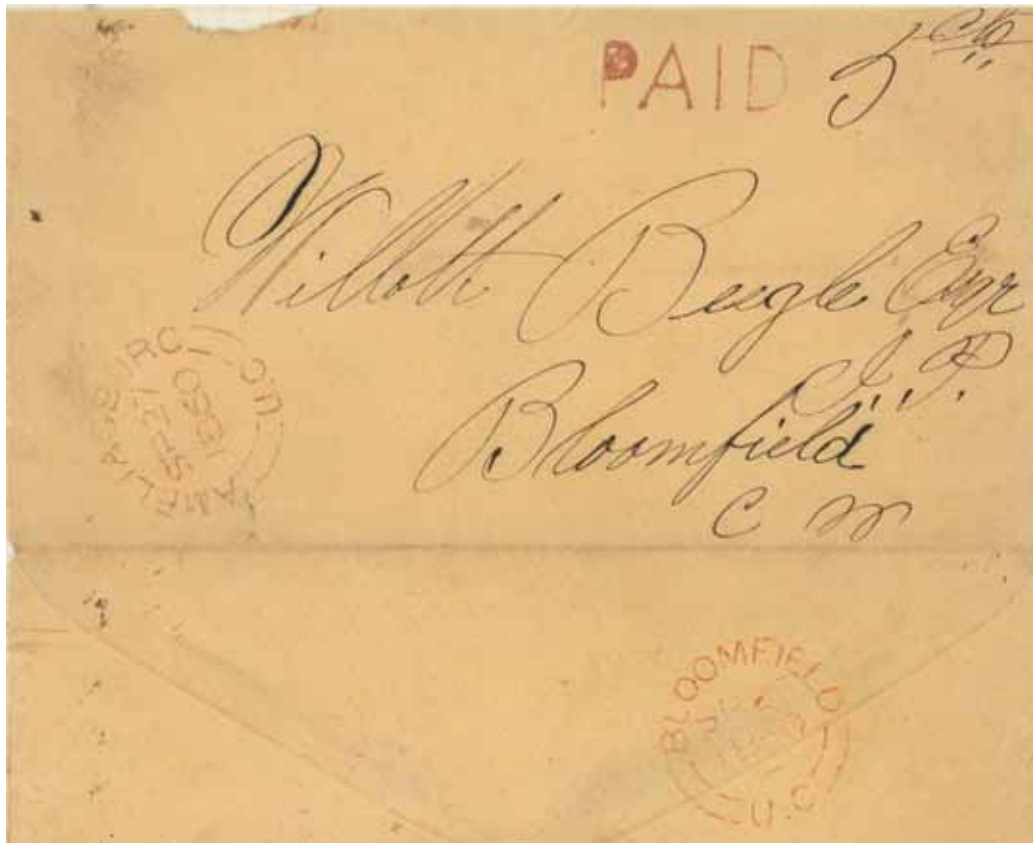 PAID 5 cts
Willott Beegle Esqr
J. P.
Bloomfield
C W
AMELIASB RG U.C
SP 21
1860
BLOOMFIELD U.C